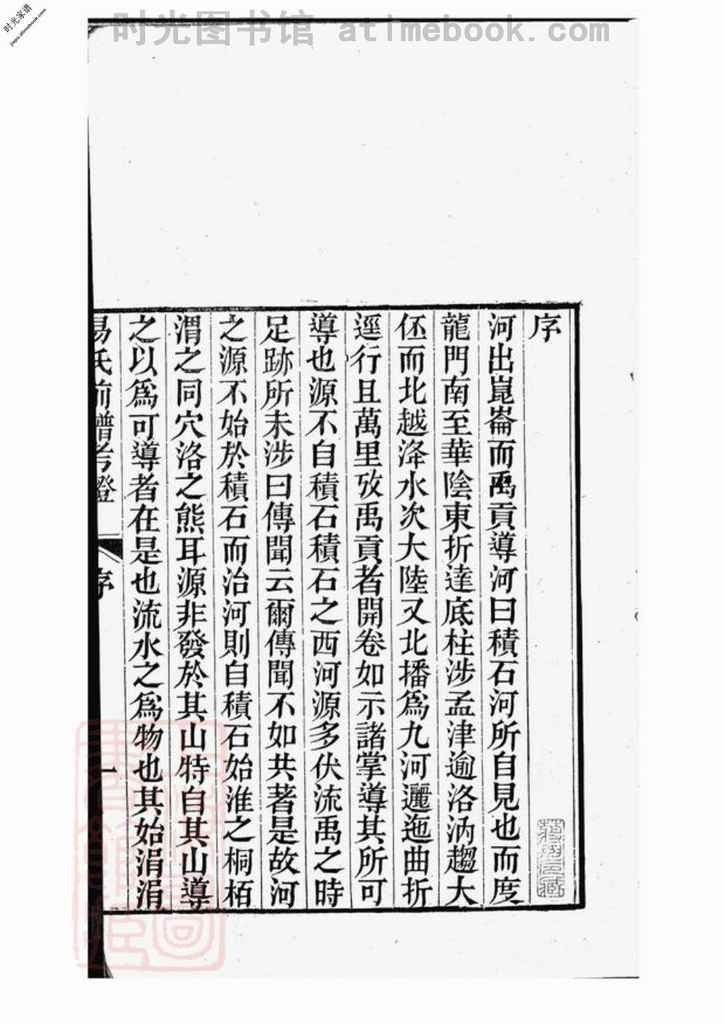 时光图书馆 atimebook.com
时光家谱
序
河出崑崙而禹貢導河曰積石河所自見也而度
龍門南至華陰東折達底柱涉孟津逾洛汭趨大
伾而北越洚水次大陸又北播爲九河邐迤曲折
逕行且萬里攷禹貢者開卷如示諸掌導其所可
導也源不自積石積石之西河源多伏流禹之時
足跡所未涉曰傳聞云爾傳聞不如共著是故河
之源不始於積石而治河則自積石始淮之桐栢
渭之同穴洛之熊耳源非發於其山特自其山導
之以爲可導者在是也流水之爲物也其始涓涓
易氏前譜考證 序 一